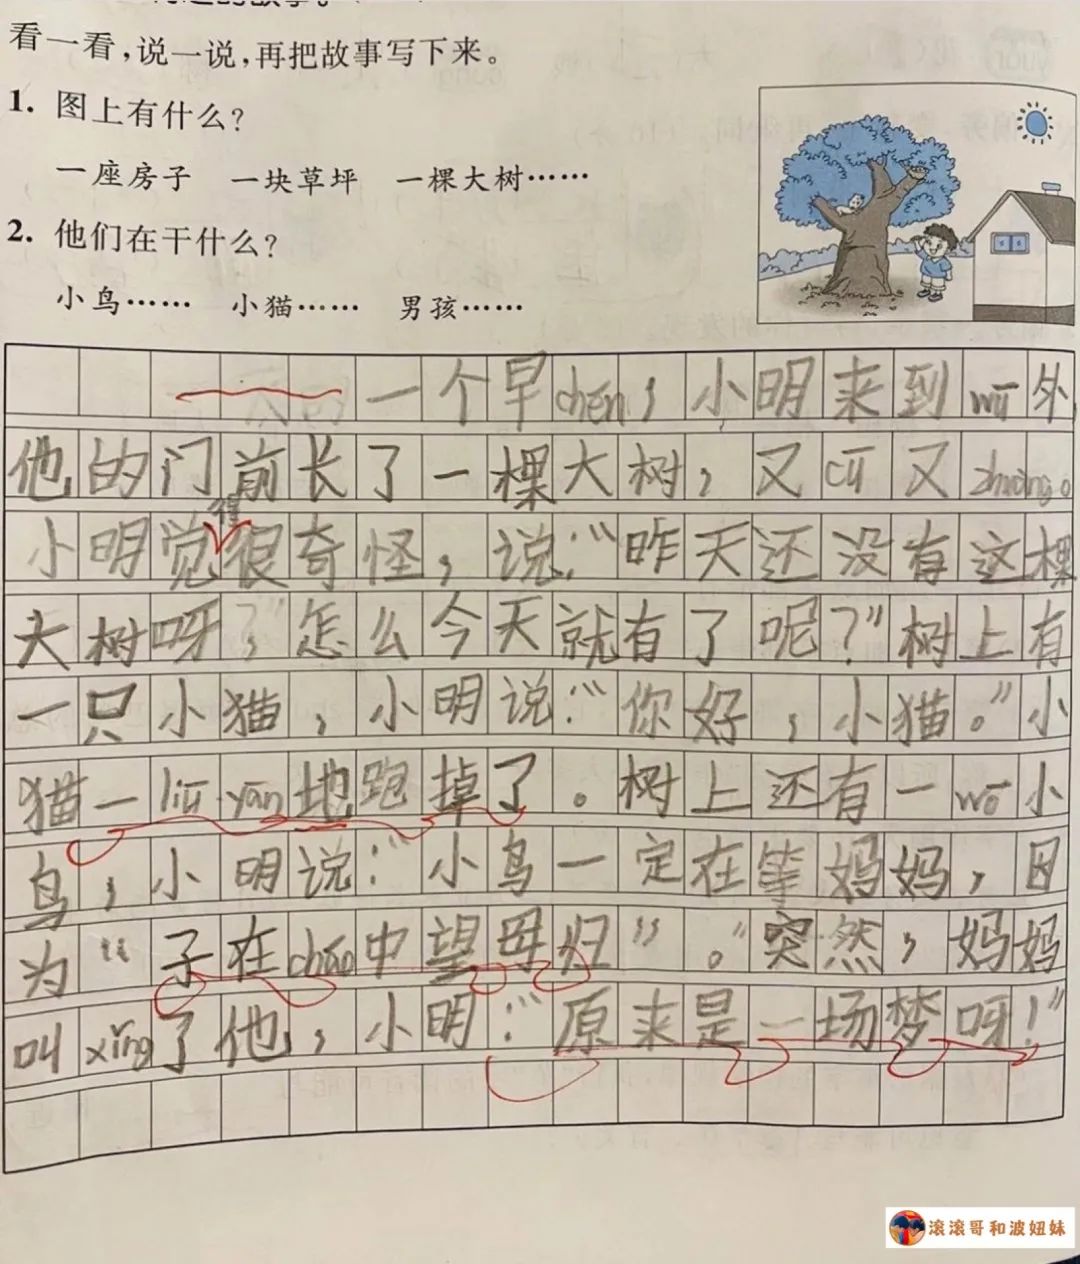 看一看，说一说，再把故事写下来。
1. 图上有什么？
一座房子 一块草坪 一棵大树……
2. 他们在干什么？
小鸟…… 小猫…… 男孩……
一个早chén，小明来到wū外
他的门前长了一棵大树，又cū又zhuàng。
小明觉得很奇怪，说：“昨天还没有这棵
大树呀，怎么今天就有了呢？”树上有
一只小猫，小明说：“你好，小猫。”小
猫一liū yān地跑掉了。树上还有一wō小
鸟，小明说：“小鸟一定在等妈妈，因
为“子在cháo中望母归”。”突然，妈妈
叫xǐng了他，小明：“原来是一场梦呀！”
滚滚哥和波妞妹